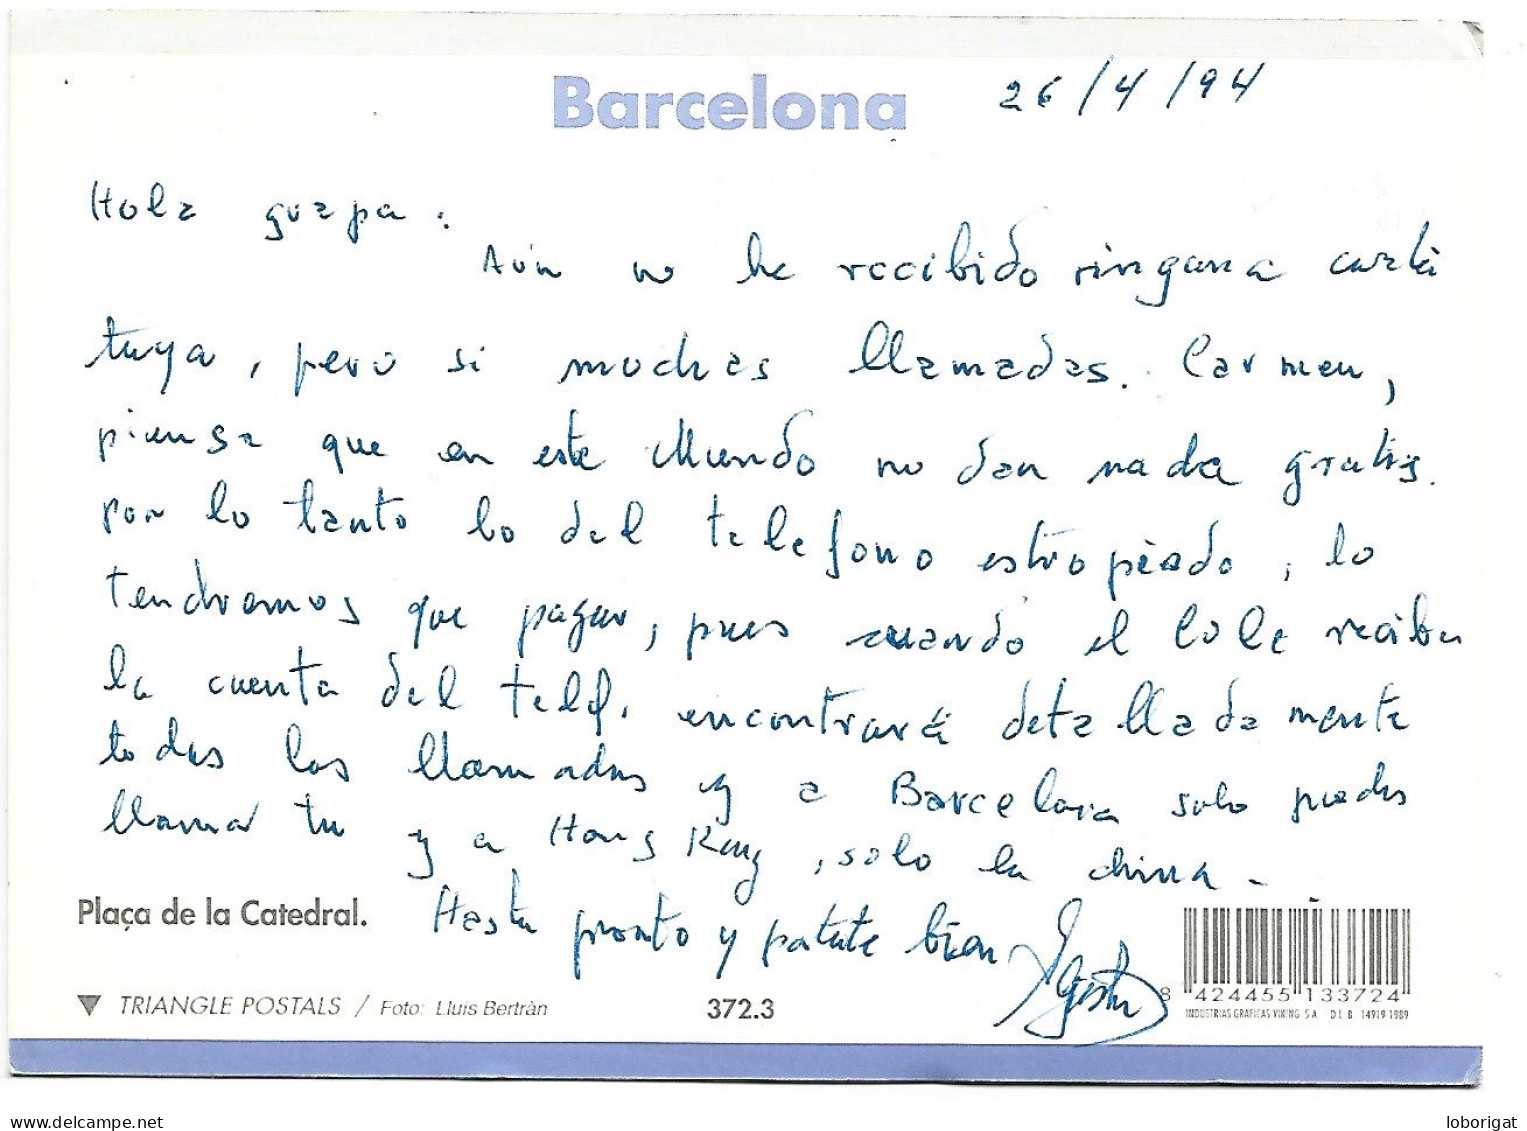 Barcelona
26/4/94
Hola guapa:
Aún no he recibido ninguna carta
tuya, pero si muchas llamadas. Carmen,
piensa que en este Mundo no dan nada gratis.
por lo tanto lo del telefono estropeado, lo
tendremos que pagar, pues cuando el Cole reciba
la cuenta del telef. encontrará detalladamente
todas las llamadas y a Barcelona solo puedes
llamar tu y a Hong Kong, solo la china.
Hasta pronto y portate bien
Agustin
Plaça de la Catedral.
TRIANGLE POSTALS / Foto: Lluís Bertràn
372.3
8 424455 133724
INDUSTRIAS GRAFICAS VIKING S.A. D.L.B. 14919-1989
loborigat
delcampe.net